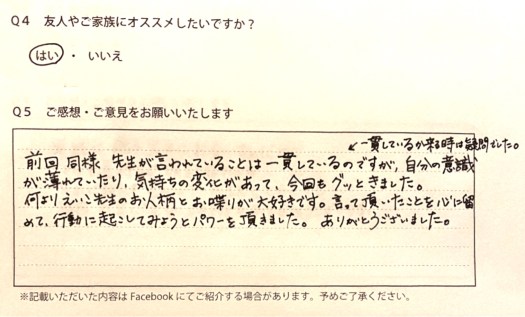 Q4 友人やご家族にオススメしたいですか？
はい ・ いいえ
Q5 ご感想・ご意見をお願いいたします
↙一貫しているか来る時は疑問でした。
前回 同様 先生が言われていることは一貫しているのですが, 自分の意識
が薄れていたり, 気持ちの変化があって, 今回もグッときました。
何よりえいこ先生のお人柄とお喋りが大好きです。言って頂いたことを心に留
めて, 行動に起こしてみようとパワーを頂きました。 ありがとうございました。
※記載いただいた内容は Facebook にてご紹介する場合があります。予めご了承ください。